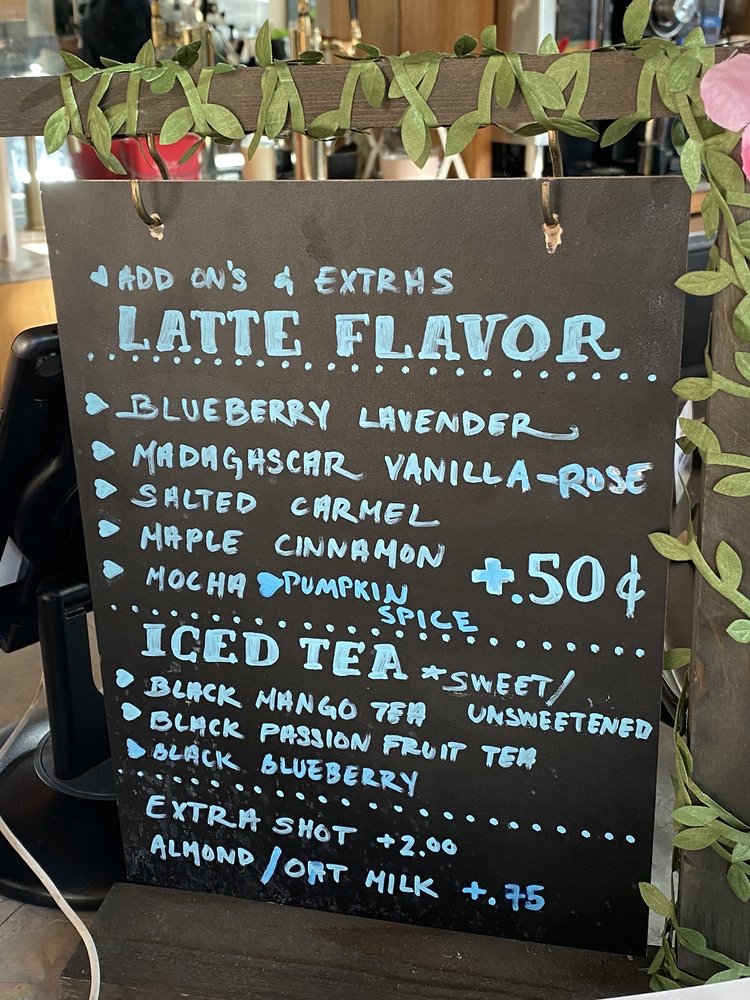 ADD ON'S & EXTRAS
LATTE FLAVOR
BLUEBERRY LAVENDER
MADAGHSCAR VANILLA-ROSE
SALTED CARMEL
MAPLE CINNAMON
+.50¢
MOCHA PUMPKIN
SPICE
ICED TEA *SWEET/
UNSWEETENED
BLACK MANGO TEA
BLACK PASSION FRUIT TEA
BLACK BLUEBERRY
EXTRA SHOT +2.00
ALMOND/OAT MILK +.75